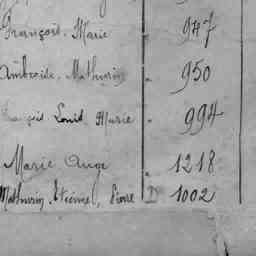 François, Marie 947
Ambroise, Mathurin " 950
François Louis Marie " 994
Marie Ange " 1218
Mathurin, Etienne, Pierre D 1002